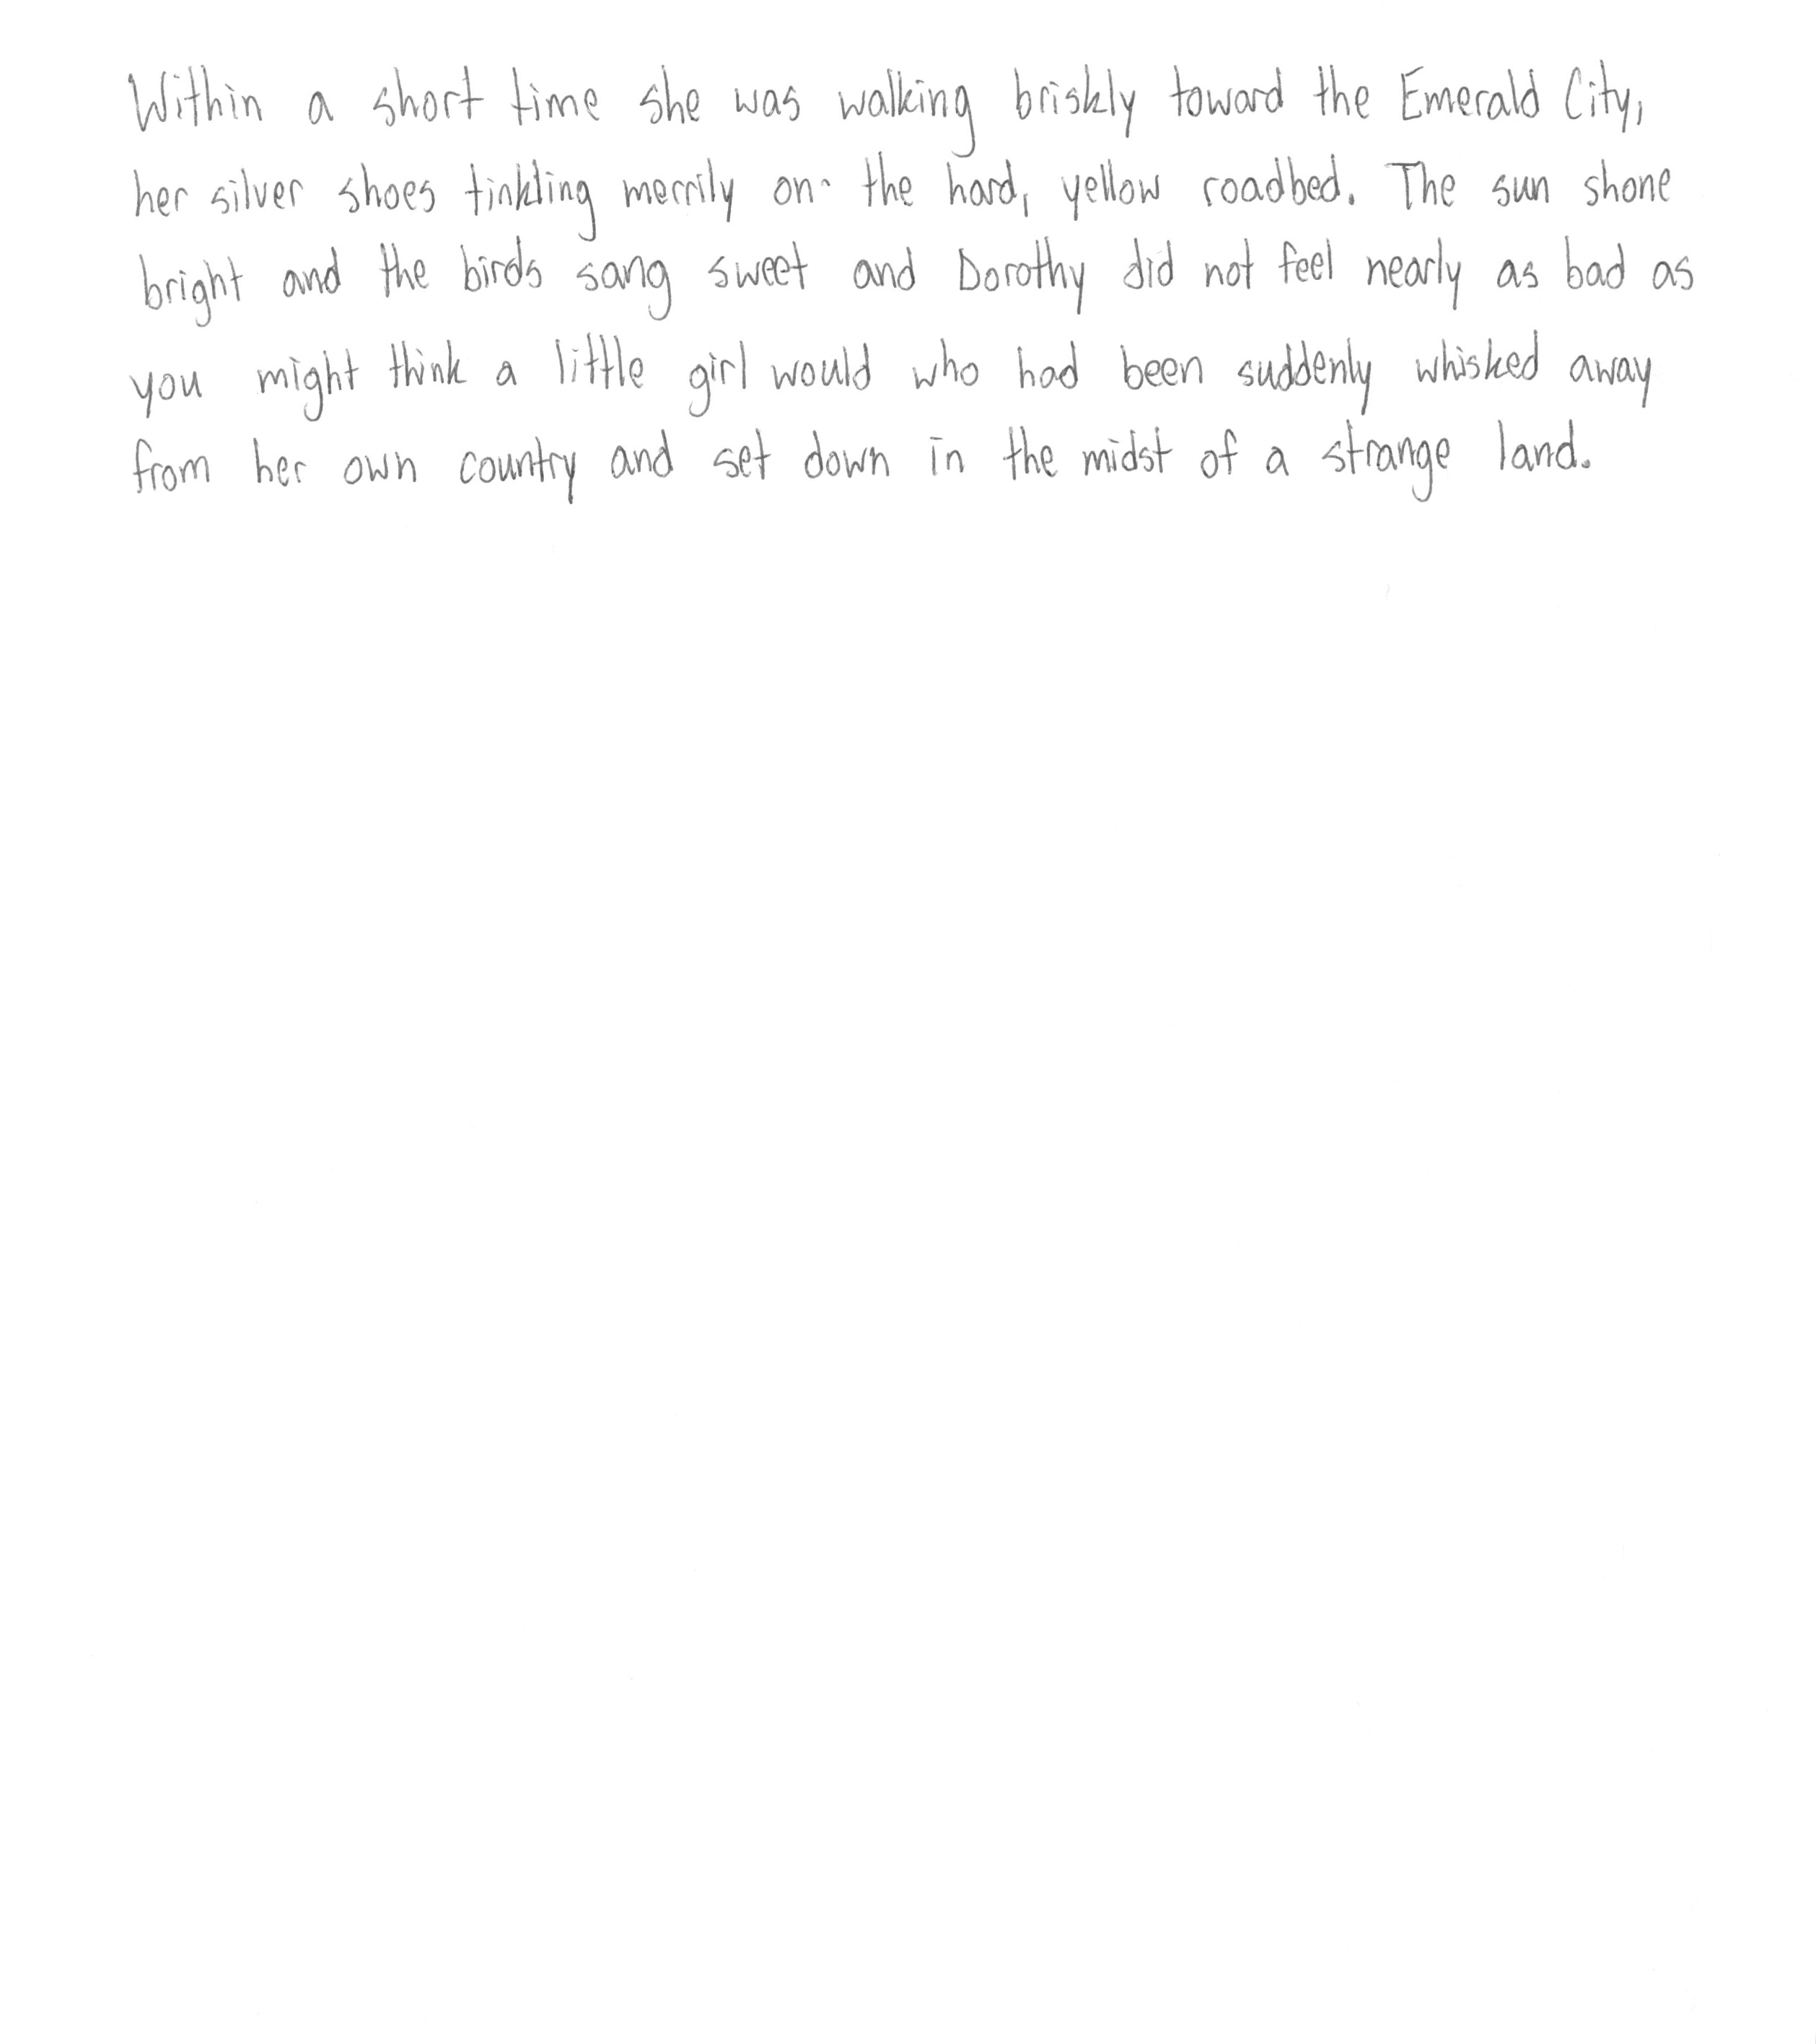 Within a short time she was walking briskly toward the Emerald City,
her silver shoes tinkling merrily on the hard, yellow roadbed. The sun shone
bright and the birds sang sweet and Dorothy did not feel nearly as bad as
you might think a little girl would who had been suddenly whisked away
from her own country and set down in the midst of a strange land.